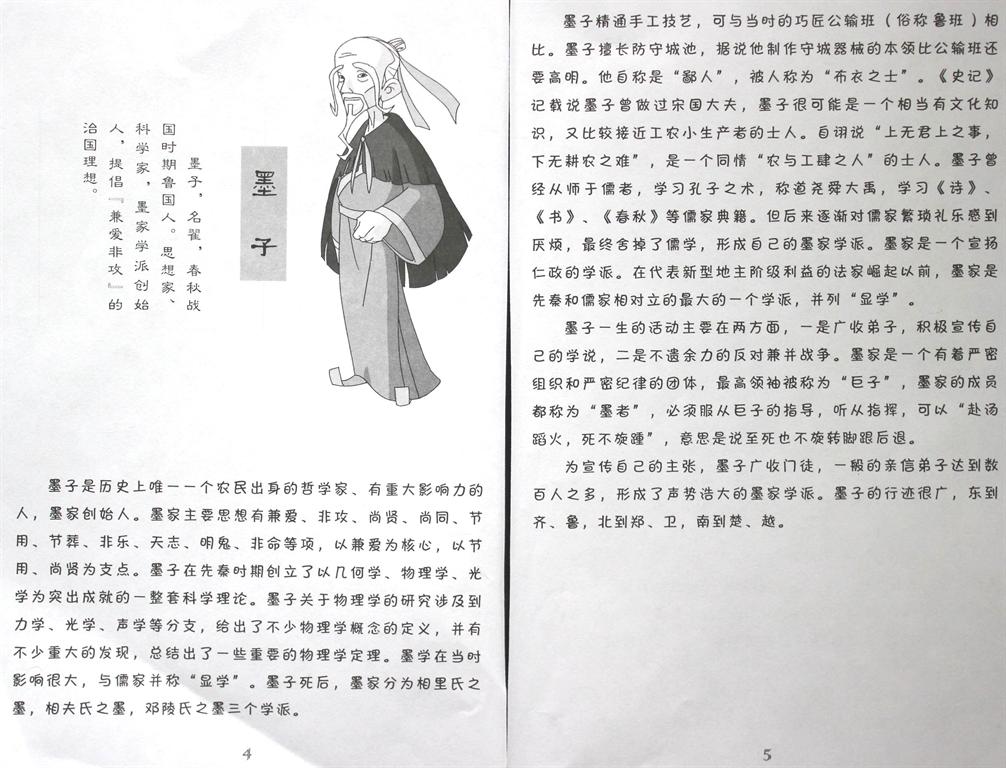 墨子
墨子，名翟，春秋战
国时期鲁国人。思想家、
科学家，墨家学派创始
人，提倡『兼爱非攻』的
治国理想。
墨子是历史上唯一一个农民出身的哲学家、有重大影响力的
人，墨家创始人。墨家主要思想有兼爱、非攻、尚贤、尚同、节
用、节葬、非乐、天志、明鬼、非命等项，以兼爱为核心，以节
用、尚贤为支点。墨子在先秦时期创立了以几何学、物理学、光
学为突出成就的一整套科学理论。墨子关于物理学的研究涉及到
力学、光学、声学等分支，给出了不少物理学概念的定义，并有
不少重大的发现，总结出了一些重要的物理学定理。墨学在当时
影响很大，与儒家并称“显学”。墨子死后，墨家分为相里氏之
墨，相夫氏之墨，邓陵氏之墨三个学派。
4
墨子精通手工技艺，可与当时的巧匠公输班（俗称鲁班）相
比。墨子擅长防守城池，据说他制作守城器械的本领比公输班还
要高明。他自称是“鄙人”，被人称为“布衣之士”。《史记》
记载说墨子曾做过宋国大夫，墨子很可能是一个相当有文化知
识，又比较接近工农小生产者的士人。自诩说“上无君上之事，
下无耕农之难”，是一个同情“农与工肆之人”的士人。墨子曾
经从师于儒者，学习孔子之术，称道尧舜大禹，学习《诗》、
《书》、《春秋》等儒家典籍。但后来逐渐对儒家繁琐礼乐感到
厌烦，最终舍掉了儒学，形成自己的墨家学派。墨家是一个宣扬
仁政的学派。在代表新型地主阶级利益的法家崛起以前，墨家是
先秦和儒家相对立的最大的一个学派，并列“显学”。
墨子一生的活动主要在两方面，一是广收弟子，积极宣传自
己的学说，二是不遗余力的反对兼并战争。墨家是一个有着严密
组织和严密纪律的团体，最高领袖被称为“巨子”，墨家的成员
都称为“墨者”，必须服从巨子的指导，听从指挥，可以“赴汤
蹈火，死不旋踵”，意思是说至死也不旋转脚跟后退。
为宣传自己的主张，墨子广收门徒，一般的亲信弟子达到数
百人之多，形成了声势浩大的墨家学派。墨子的行迹很广，东到
齐、鲁，北到郑、卫，南到楚、越。
5